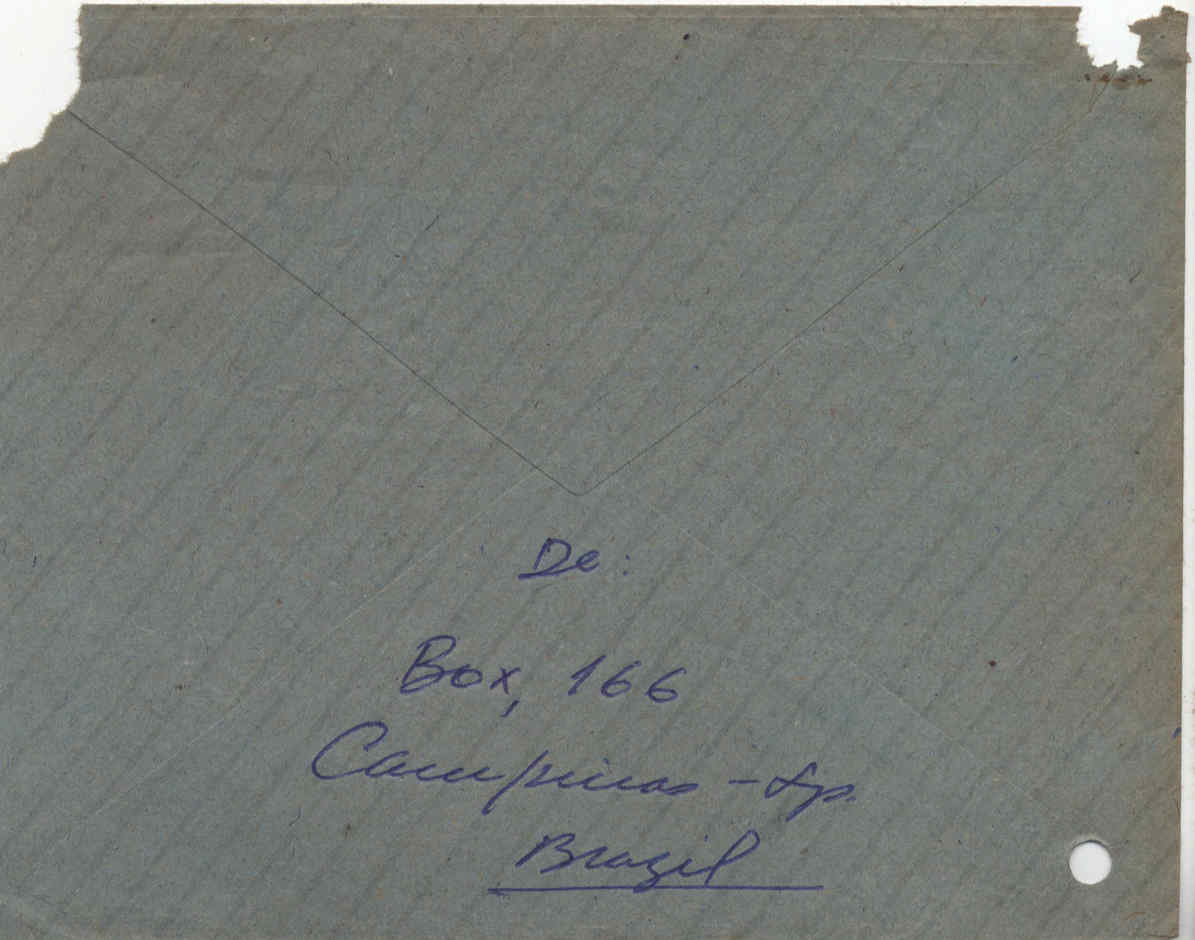 De:
Box, 166
Campinas - Sp.
Brazil